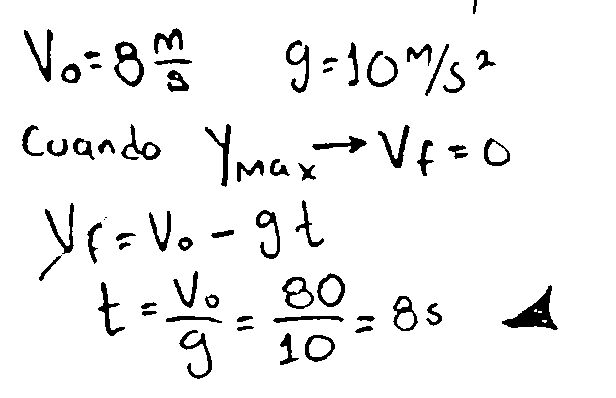 V₀ = 8 m/s g = 10 M/s²
Cuando Y_Max → V_f = 0
V_f = V₀ - g t
t = V₀/g = 80/10 = 8s